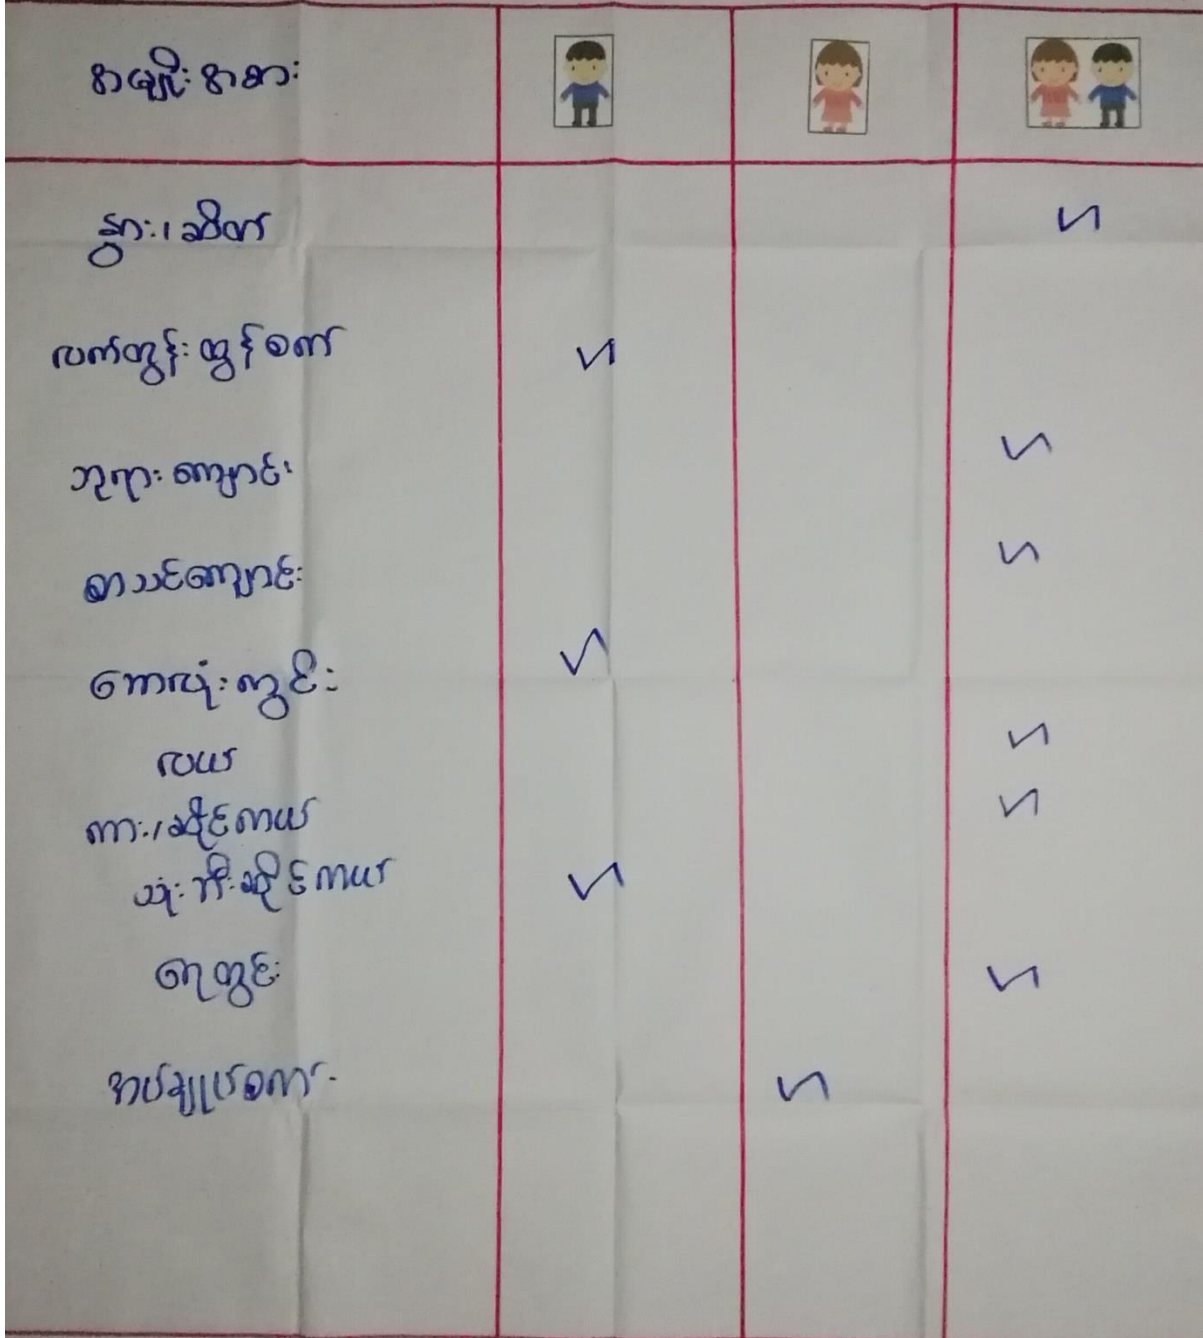 အမျိုးအစား
နွား၊ဆိတ်
လက်တွန်းထွန်စက်
ဘုရားကျောင်း
စာသင်ကျောင်း
ဘောလုံးကွင်း
လယ်
ကား၊ဆိုင်ကယ်
သုံးဘီးဆိုင်ကယ်
ရေတွင်း
အပ်ချုပ်စက်